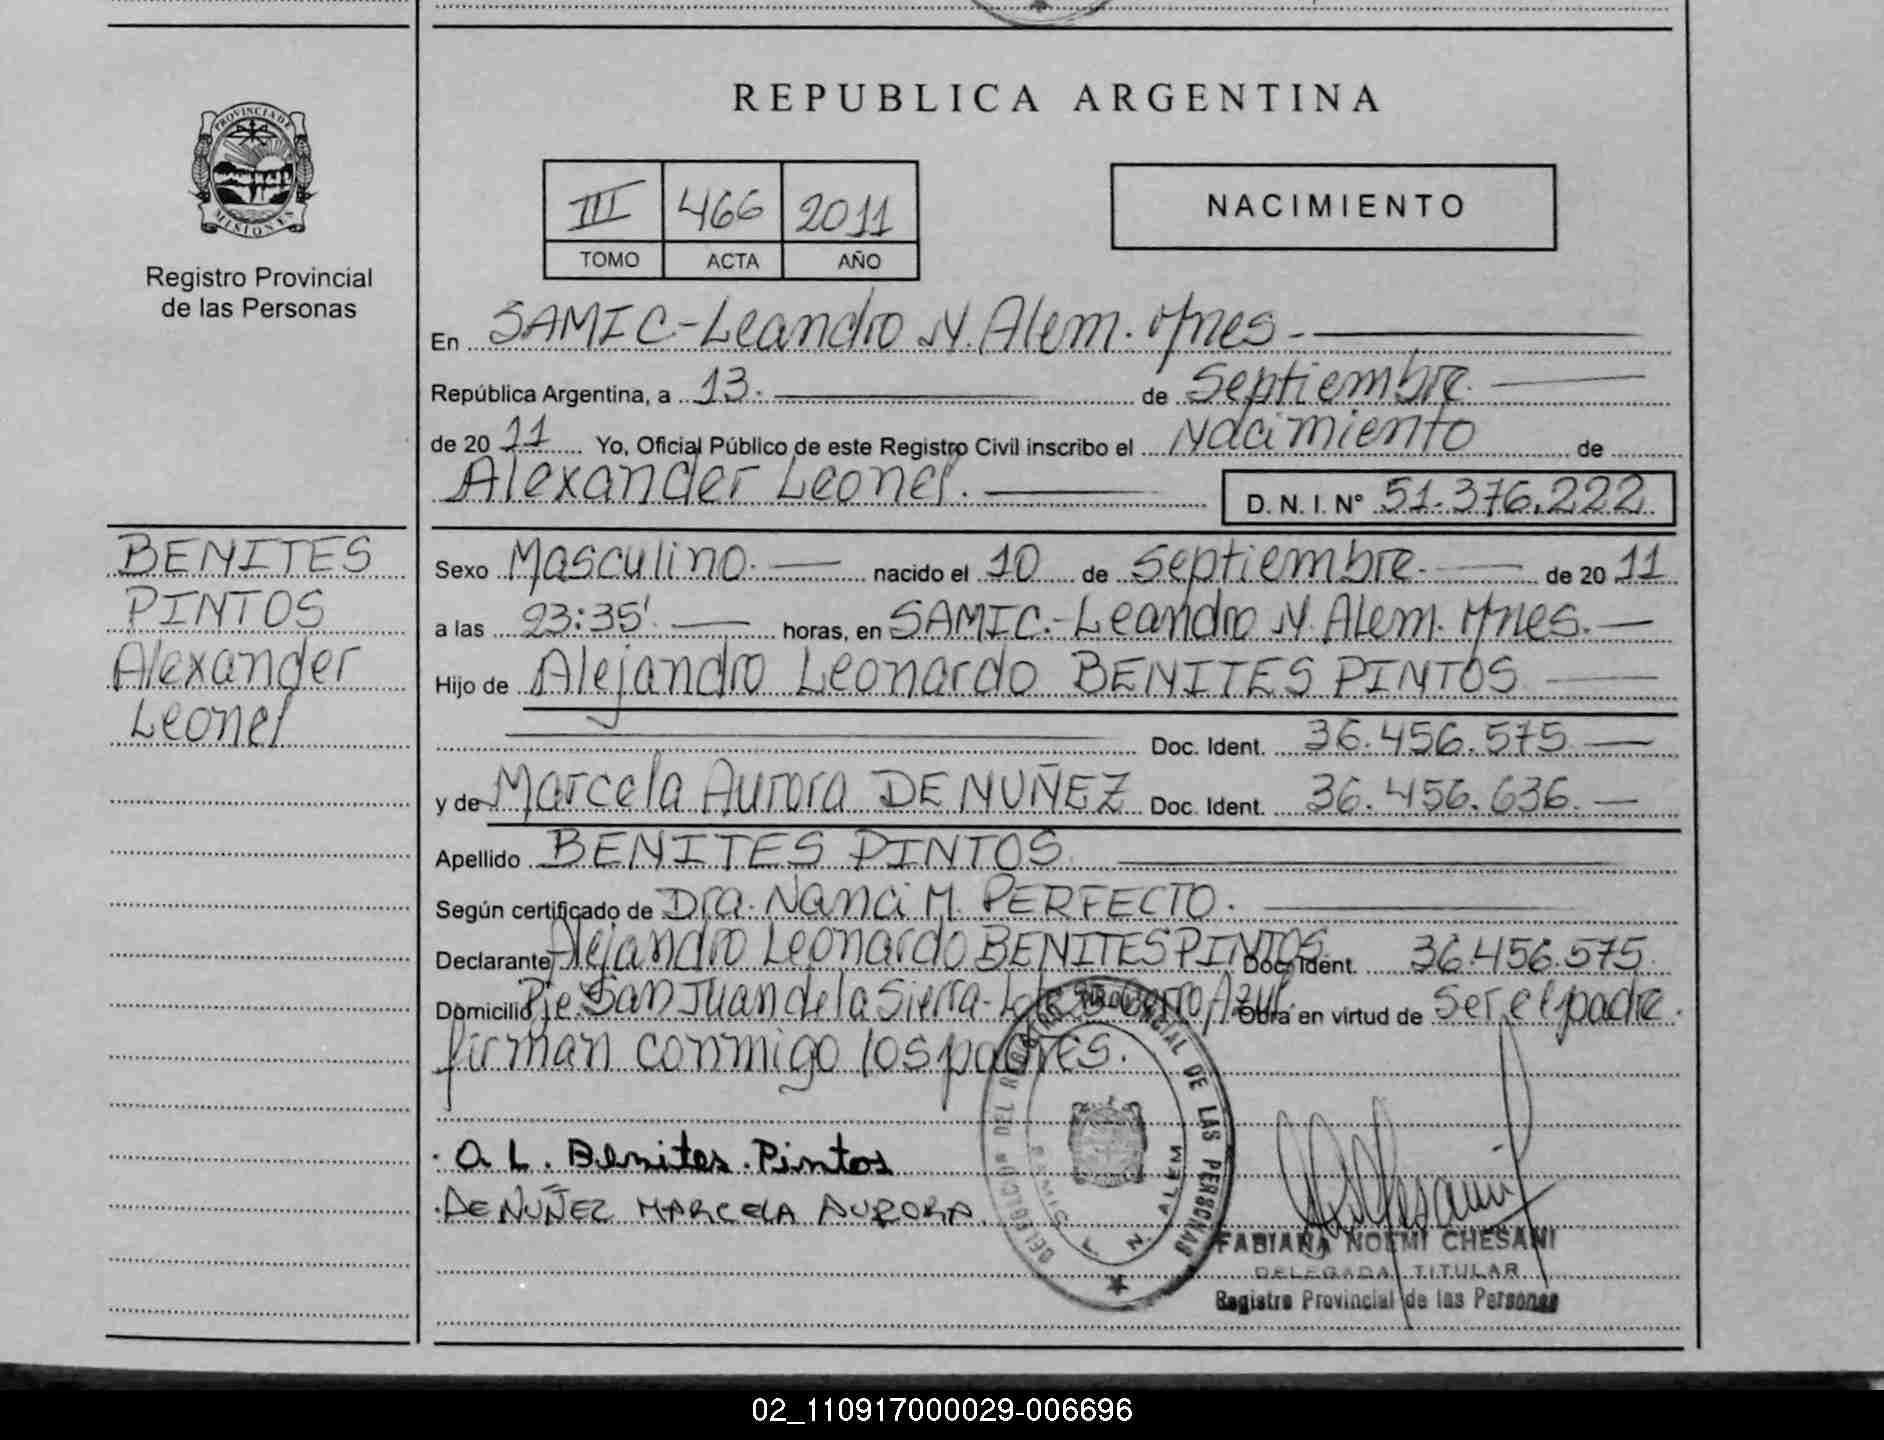 REPUBLICA ARGENTINA
PROVINCIA DE
MISIONES
Registro Provincial
de las Personas
III 466 2011
TOMO ACTA AÑO
NACIMIENTO
En SAMIC-Leandro N. Alem. Mnes -
República Argentina, a 13. de Septiembre.
de 20 11 Yo, Oficial Público de este Registro Civil inscribo el Nacimiento de
Alexander Leonel. D. N. I. N° 51.376.222
BENITES
PINTOS
Alexander
Leonel
Sexo Masculino. nacido el 10 de Septiembre. de 20 11
a las 23:35' horas, en SAMIC.-Leandro N. Alem. Mnes.
Hijo de Alejandro Leonardo BENITES PINTOS
Doc. Ident. 36.456.575
y de Marcela Aurora DE NUÑEZ Doc. Ident. 36.456.636.
Apellido BENITES PINTOS
Según certificado de Dra. Nanci M. PERFECTO.
Declarante Alejandro Leonardo BENITES PINTOS Doc. Ident. 36.456.575
Domicilio Pje. San Juan de la Sierra- Cerro Azul. Obra en virtud de Ser el padre.
firman conmigo los padres.
A L. Benites. Pintos
DE NUÑEZ MARCELA AURORA.
DEL REGISTRO PROVINCIAL DE LAS PERSONAS
L. N. ALEM
FABIANA NOEMI CHESANI
DELEGADA TITULAR
Registro Provincial de las Personas
02_110917000029-006696